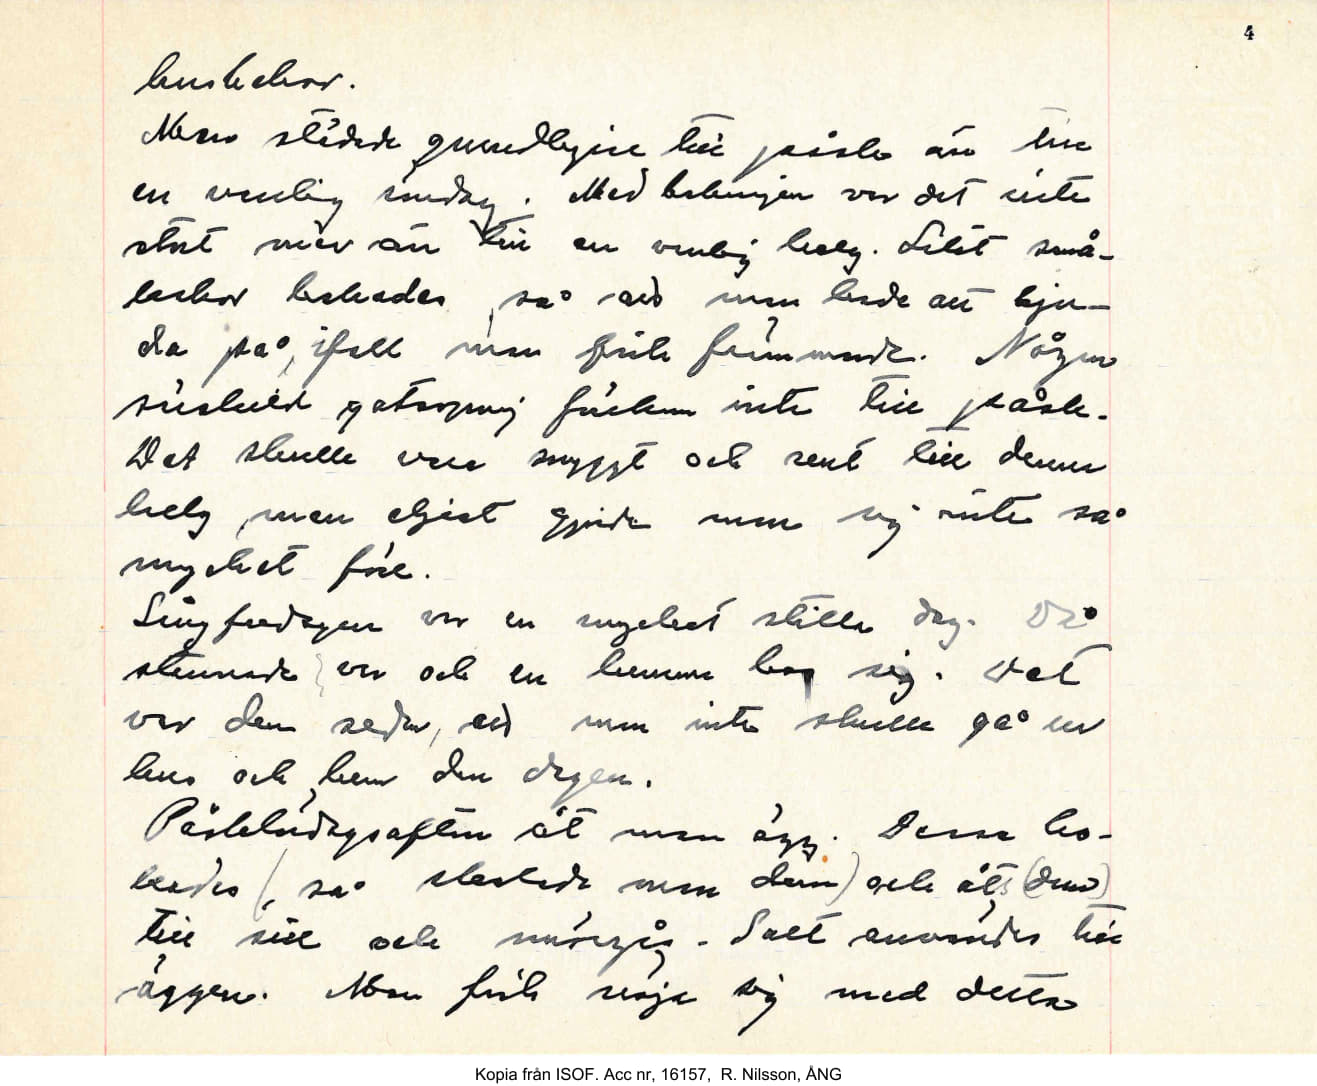 4
husbehov.
Man städade grundligare till påsk än till
en vanlig söndag. Med bakningen var det inte
stort mer än till en vanlig helg. Litet små-
kakor bakades, så att man hade att bju-
da på, ifall man fick främmande. Någon
särskild förekom inte till påsk.
Det skulle vara snyggt och rent till denna
helg, men eljest gjorde man sig inte så
mycket före.
Långfredagen var en mycket stilla dag. Då
stannade var och en hemma hos sig. Det
var den seden, att man inte skulle gå ur
hus och hem den dagen.
Påsklördagsafton åt man ägg. Dessa ko-
kades (, så skalade man dem) och åts (dem)
till sill och smörgås. Salt användes till
äggen. Man fick nöja sig med detta
Kopia från ISOF. Acc nr, 16157, R. Nilsson, ÅNG